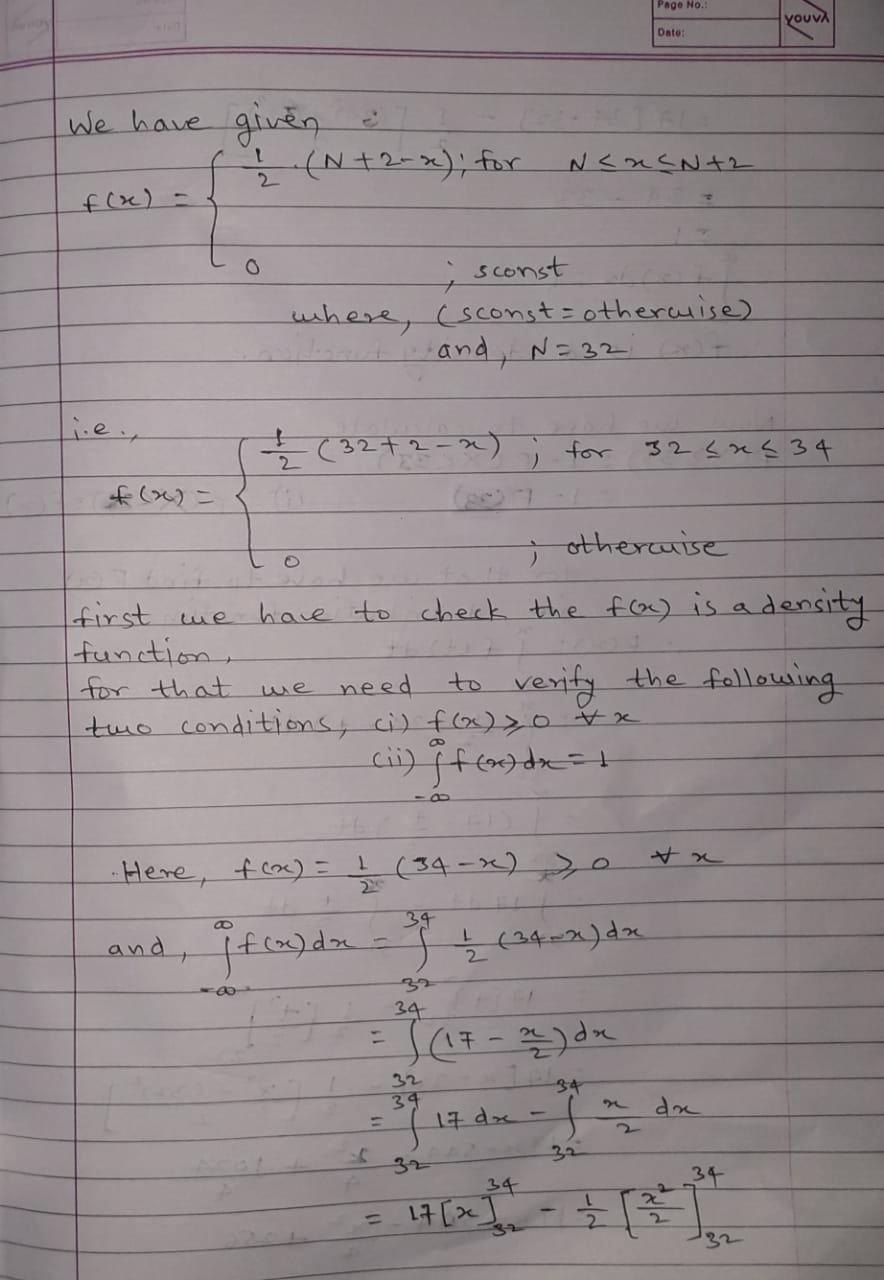 Page No.:
Date:
YOUVA
We have given :
f(x) = { 1/2 · (N+2-x); for N ≤ x ≤ N+2
0 ; sconst
where, (sconst = otherwise)
and, N = 32
i.e.,
f(x) = { 1/2 (32+2-x) ; for 32 ≤ x ≤ 34
0 ; otherwise
first we have to check the f(x) is a density
function,
for that we need to verify the following
two conditions, (i) f(x) ≥ 0 ∀ x
(ii) ∫_{-∞}^{∞} f(x) dx = 1
Here, f(x) = 1/2 (34-x) ≥ 0 ∀ x
and, ∫_{-∞}^{∞} f(x) dx = ∫_{32}^{34} 1/2 (34-x) dx
= ∫_{32}^{34} (17 - x/2) dx
= ∫_{32}^{34} 17 dx - ∫_{32}^{34} x/2 dx
= 17 [x]_{32}^{34} - 1/2 [x²/2]_{32}^{34}